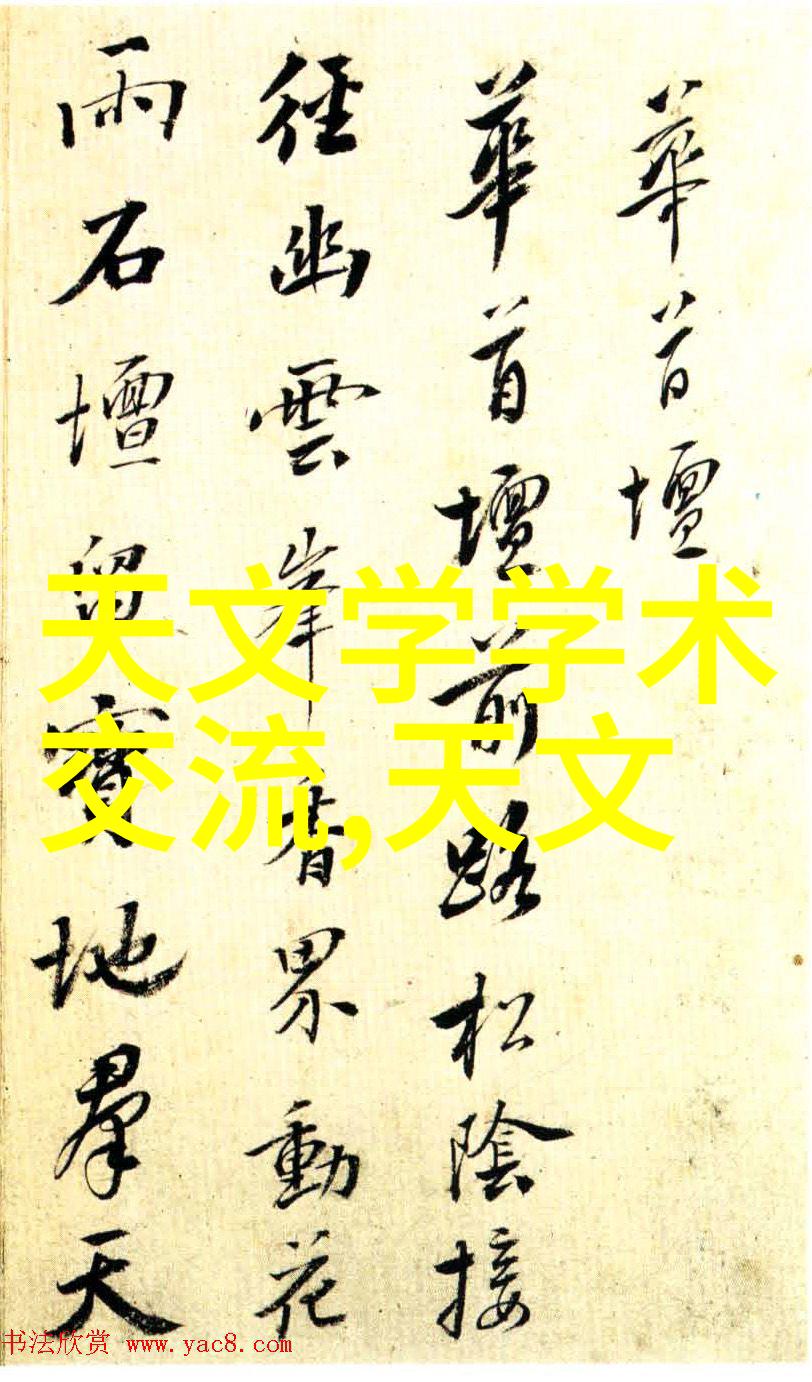 華首壇
華首壇前路松陰接
徑幽雲峯香界動花
雨石壇留寶地羣天
天文学学术
交流,天文
书法欣赏 www.yac8.com